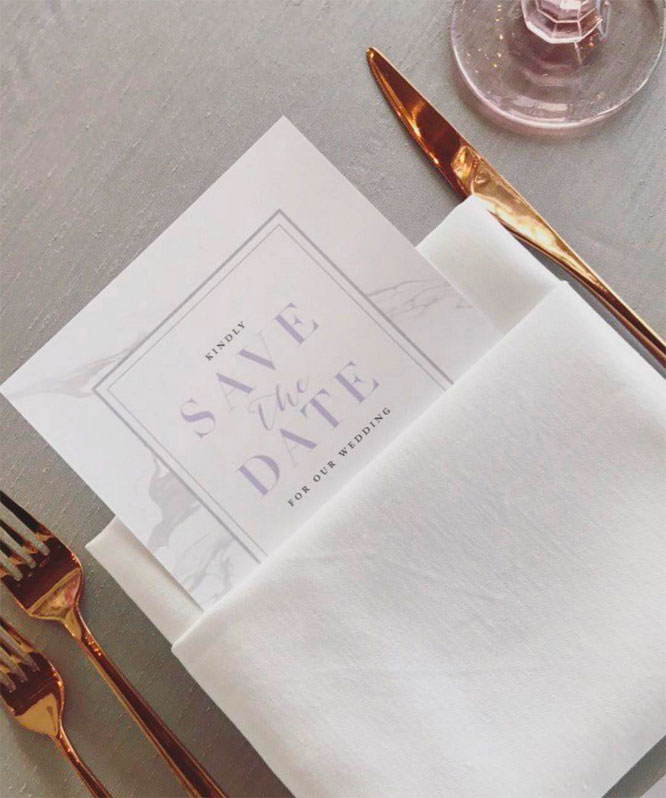 KINDLY
SAVE
the
DATE
FOR OUR WEDDING